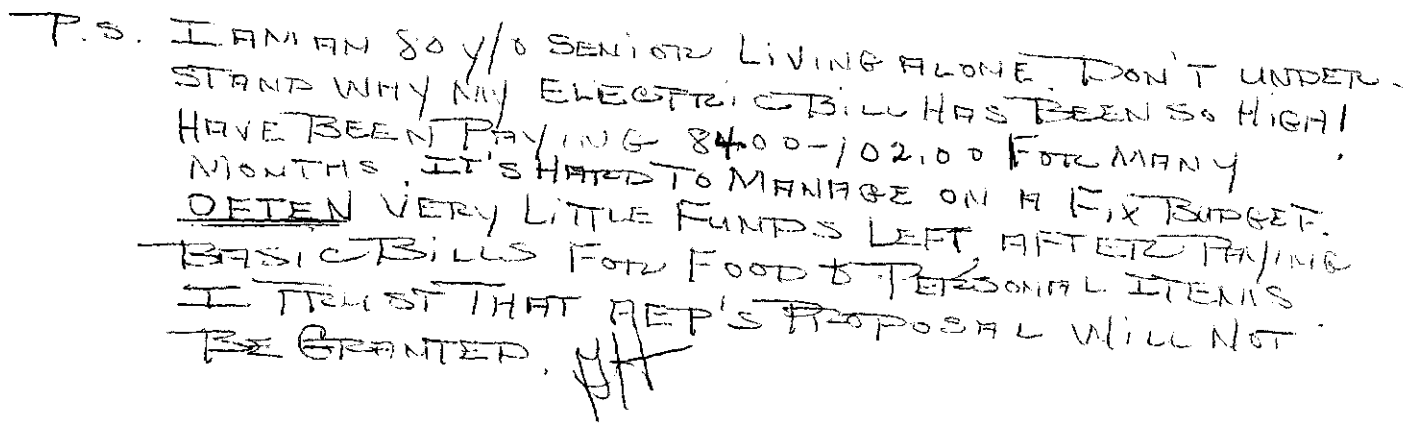 P.S. I AM AN 80 Y/O SENIOR LIVING ALONE. DON'T UNDER-
STAND WHY MY ELECTRIC BILL HAS BEEN SO HIGH!
HAVE BEEN PAYING 84.00-102.00 FOR MANY
MONTHS. IT'S HARD TO MANAGE ON A FIX BUDGET.
OFTEN VERY LITTLE FUNDS LEFT AFTER PAYING
BASIC BILLS FOR FOOD & PERSONAL ITEMS.
I TRUST THAT AEP'S PROPOSAL WILL NOT
BE GRANTED.